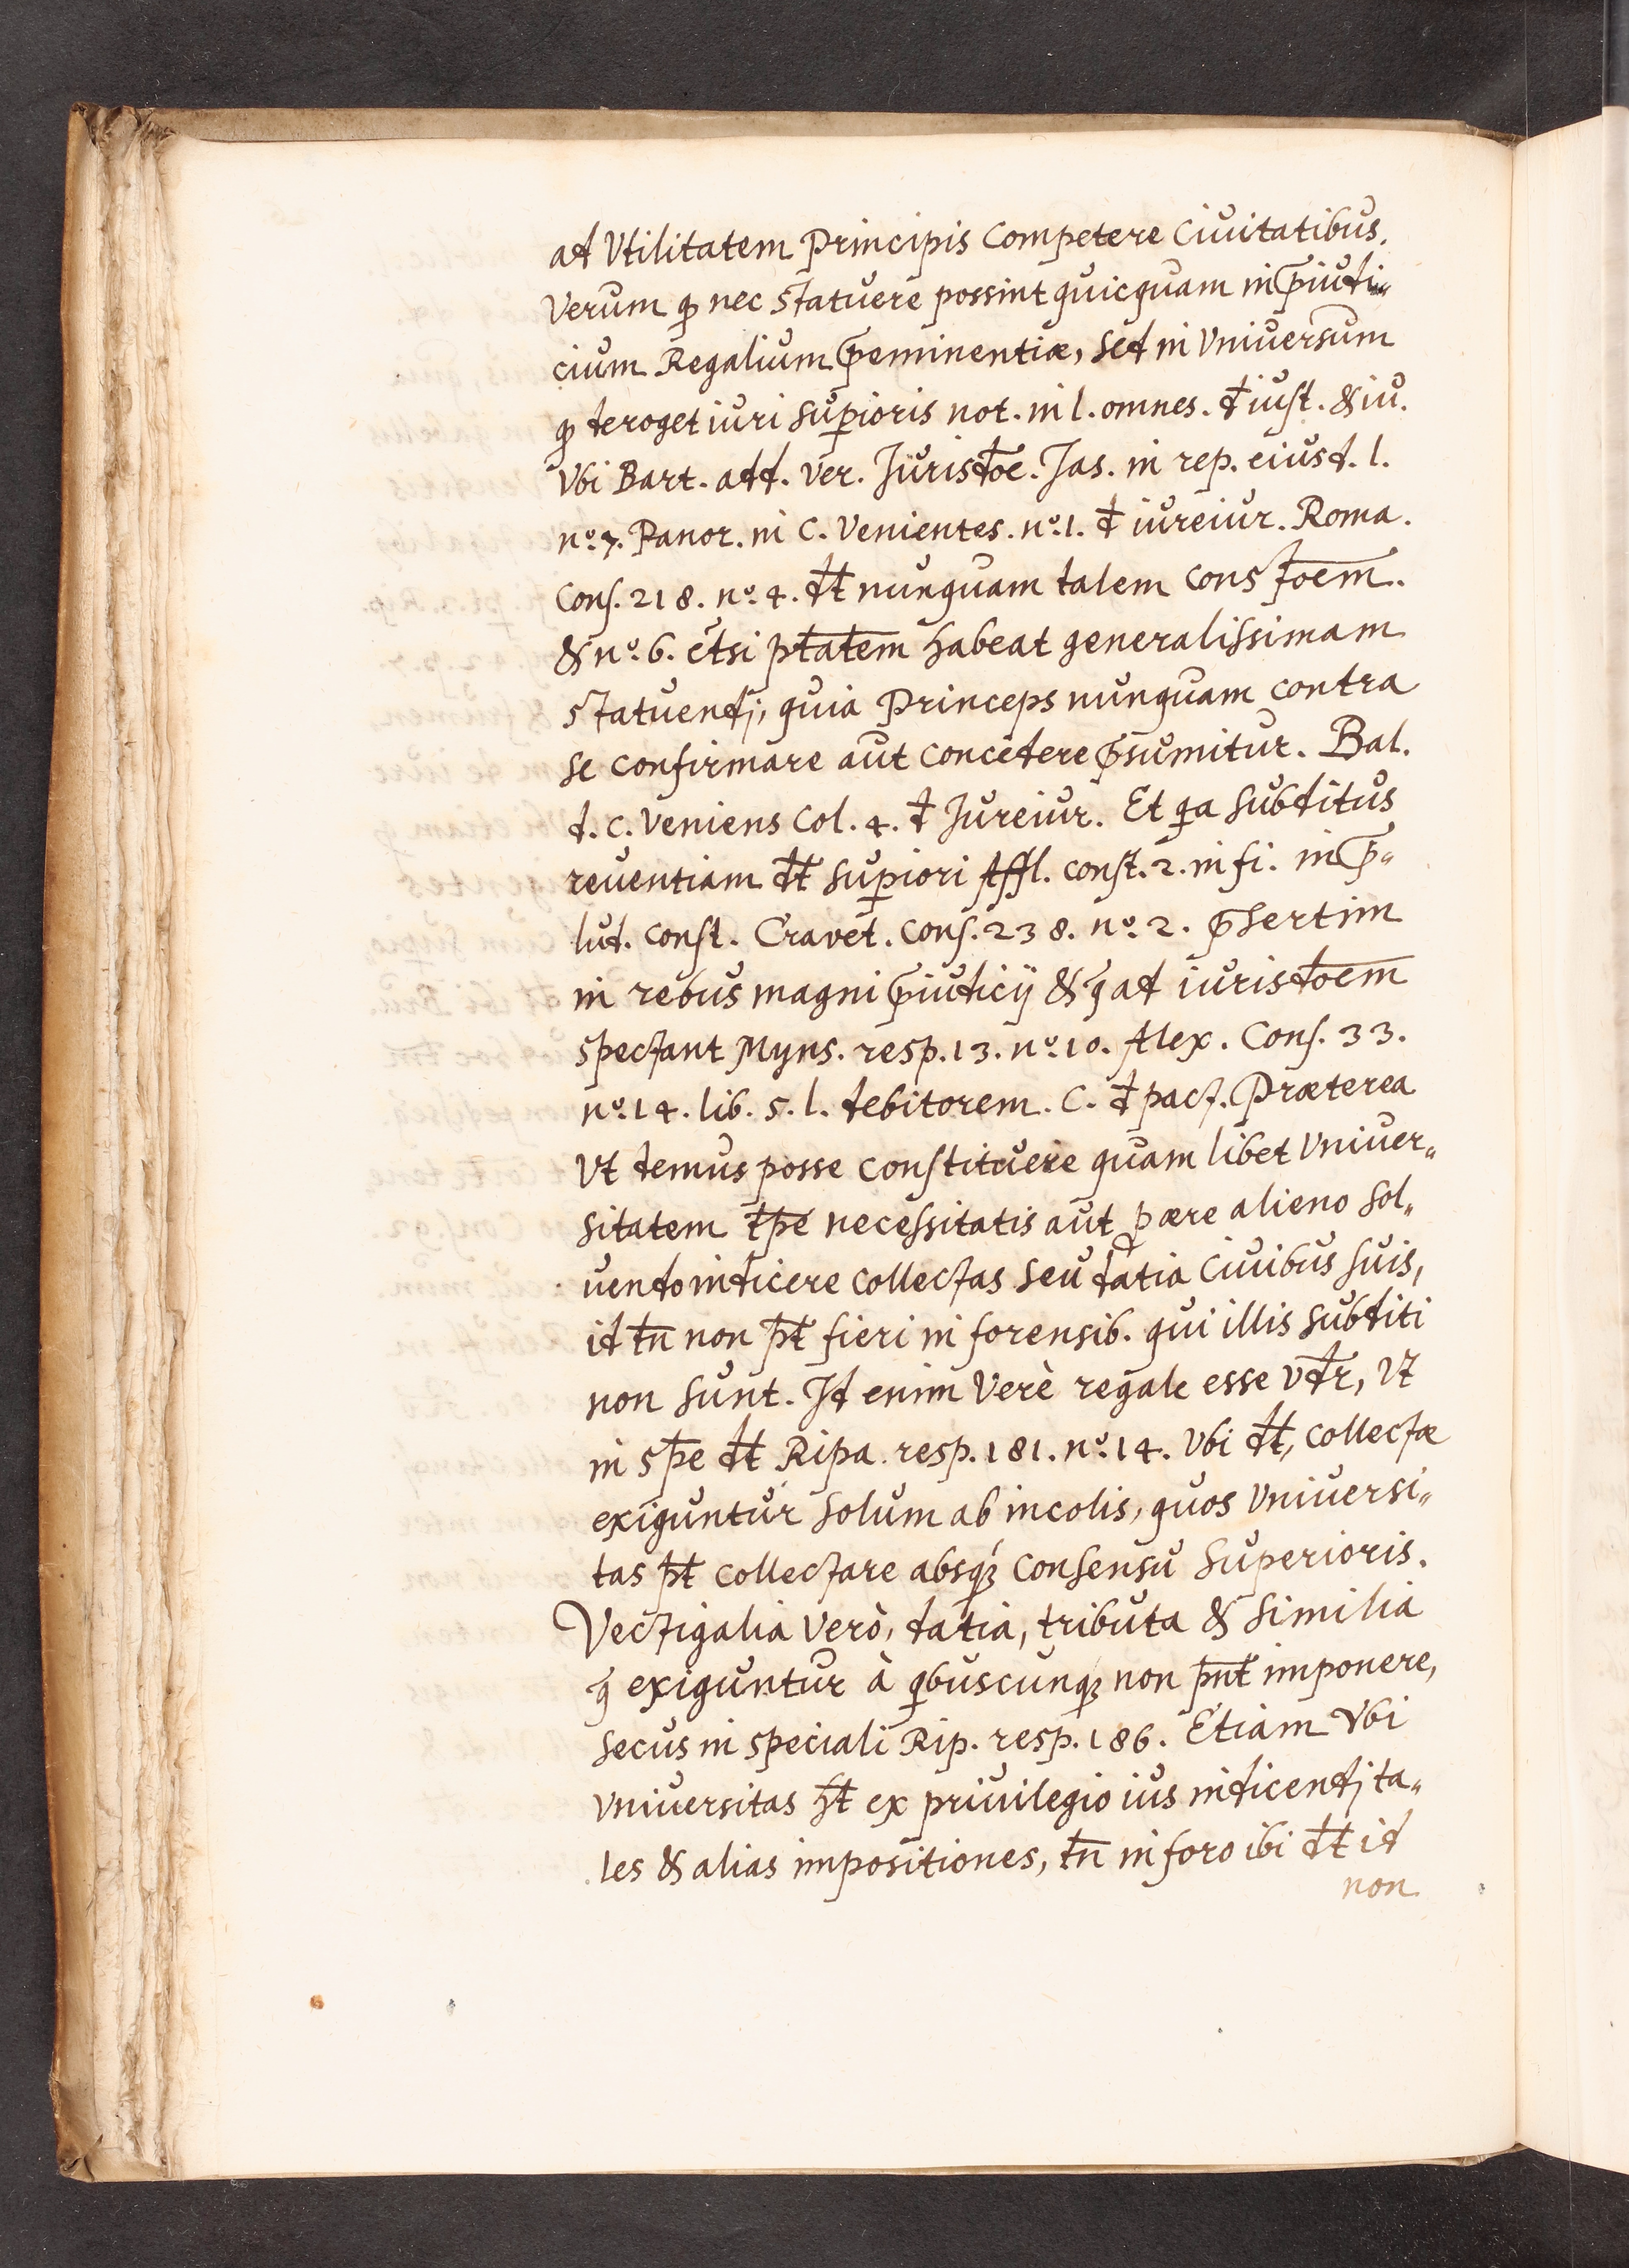 ad Vtilitatem Principis Competere Ciuitatibus.
Verum q̃ nec Statuere possint quicquam in p̄iudi„
cium Regalium p̄eminentiæ, Sed in Vniuersum
q̃ deroget iuri superioris not. in l. omnes. đ iust. & iu.
Vbi Bart. add. Ver. Jurisdõe. Jas. in rep. eiusd. l.
n.º 7. Panor. in C. Venientes. n.º 1. đ iureiur. Roma.
Cons. 218. n.º 4. dt̄ nunquam talem Constõem.
& n.º 6. etsi ptātem habeat generalissimam
Statuendj, quia Princeps nunquam contra
se confirmare aut concedere p̄sumitur. Bal.
d. c. Veniens Col. 4. đ Jureiur. Et qa subditus
reuentiam dt̄ superiori Affl. const. 2. in fi. in p̄„
lud. const. Cravet. Cons. 238. n.º 2. p̄sertim
in rebus magni p̄iudicij & q̄ ad iurisdõem
Spectant Myns. resp. 13. n.º 10. Alex. Cons. 33.
n.º 14. lib. 5. l. debitorem. C. đ pact. Præterea
Vt demus posse constituere quam libet Vniuer„
sitatem tp̄e necessitatis aut p ære alieno sol„
uendo indicere collectas seu datia Ciuibus suis,
id tn̄ non pt̄ fieri in forensib. qui illis subditi
non sunt. Id enim Verè regale esse vdr̄, Vt
in Sp̄e dt̄ Ripa. resp. 181. n.º 14. Vbi dt̄, collectæ
exiguntur solum ab incolis, quos Vniuersi„
tas pt̄ collectare absq́ʒ consensu Superioris.
Vectigalia Verò, datia, tributa & similia
q̄ exiguntur à qbuscunqʒ non pn̄t imponere,
secus in speciali Rip. resp. 186. Etiam Vbi
Vniuersitas ht̄ ex priuilegio ius indicendj ta„
les & alias impositiones, tn̄ in foro ibi dt̄ id
non